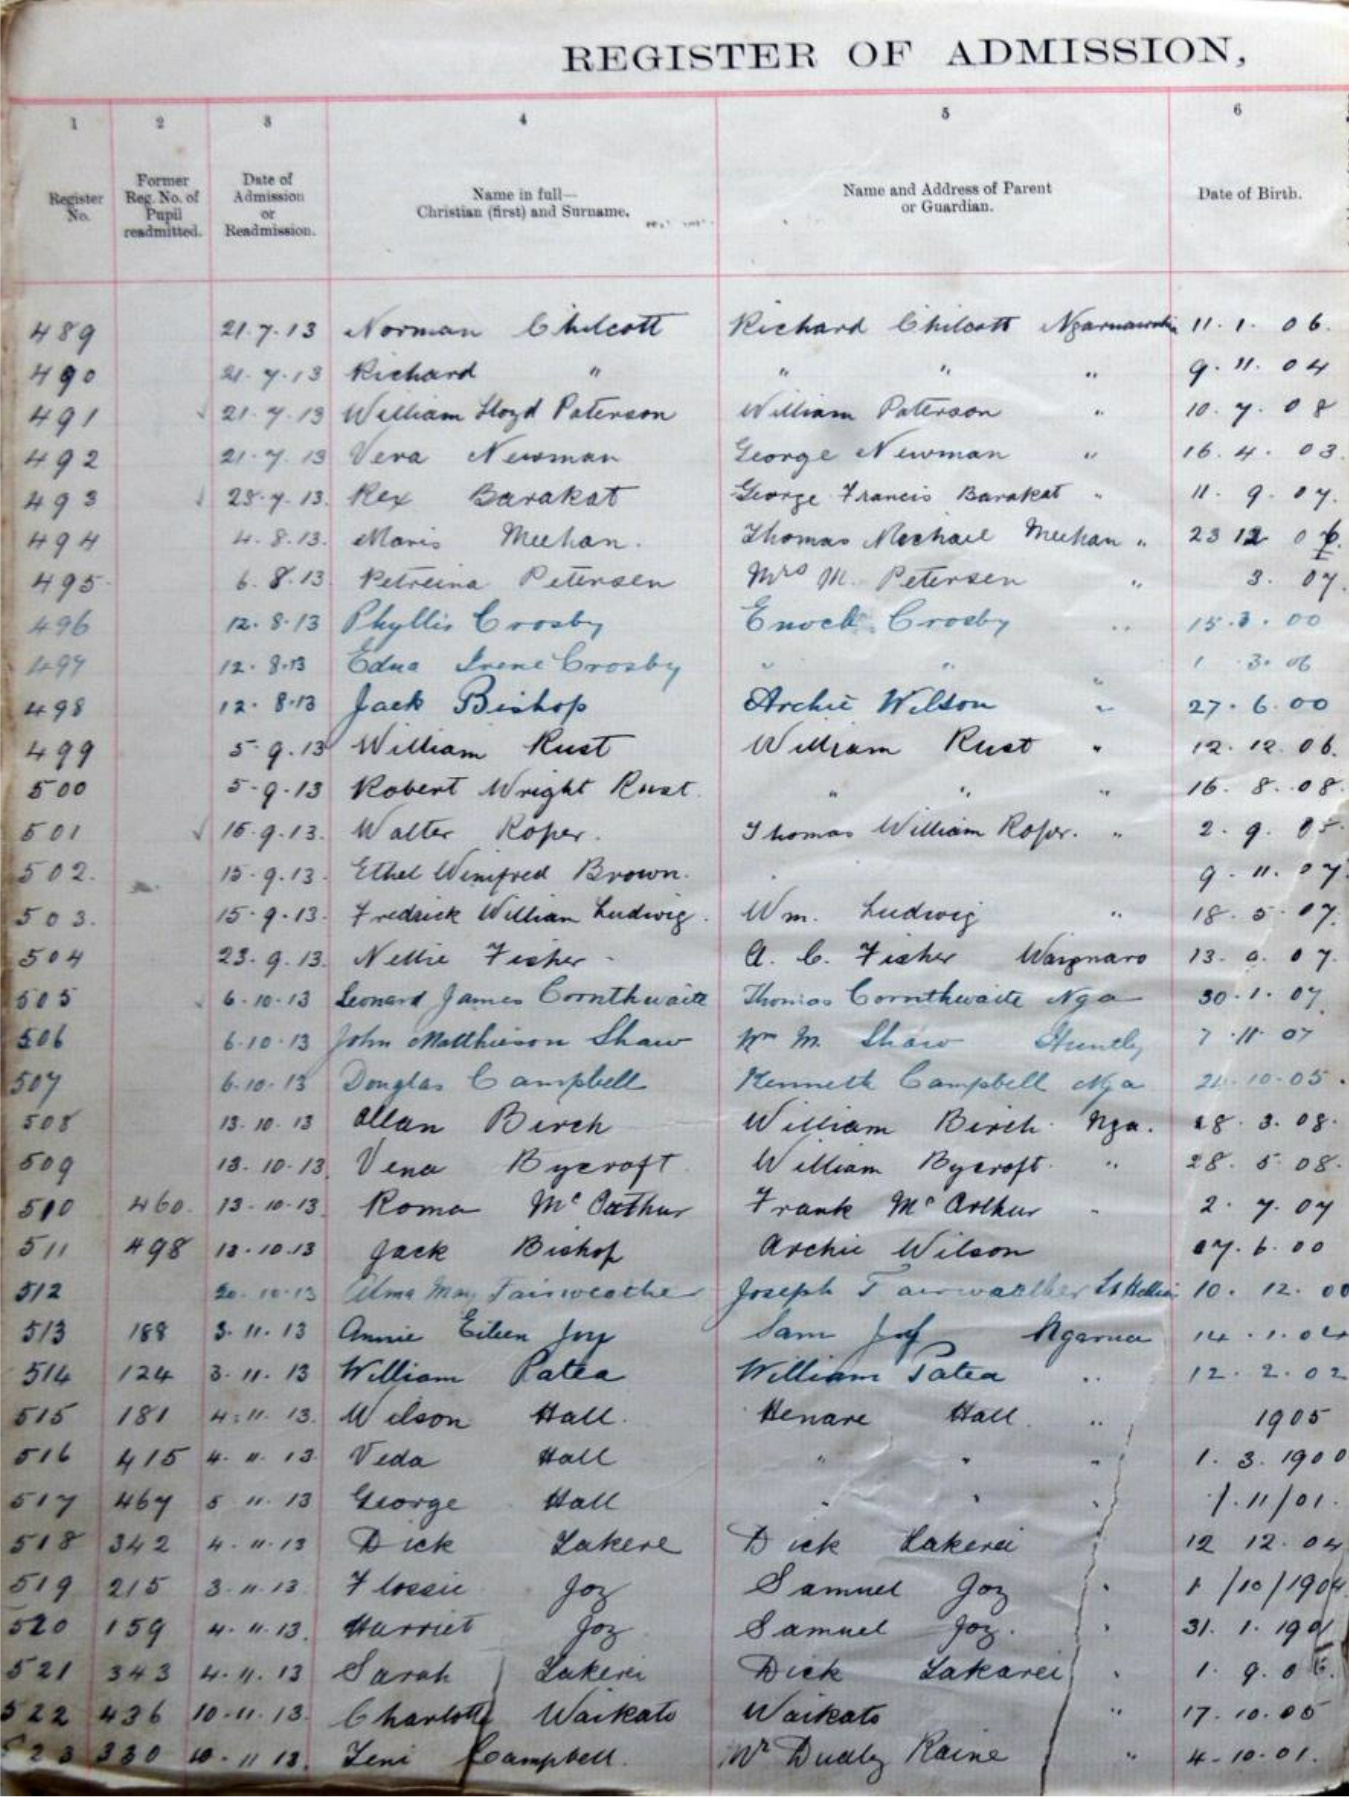 REGISTER OF ADMISSION,
1 2 3 4 5 6
Register No. Former Reg. No. of Pupil readmitted. Date of Admission or Readmission. Name in full— Christian (first) and Surname. Name and Address of Parent or Guardian. Date of Birth.
489 21.7.13 Norman Chilcott Richard Chilcott 11.1.06.
490 21.7.13 Richard " " " " 9.11.04
491 21.7.13 William Lloyd Paterson William Paterson " 10.7.08
492 21.7.13 Vera Newman George Newman " 16.4.03.
493 28.7.13. Rex Barakat George Francis Barakat " 11.9.07.
494 4.8.13. Mavis Meehan. Thomas Mechael Meehan " 23 12 06.
495 6.8.13 Petreina Petersen Mrs M. Petersen " 3.07.
496 12.8.13 Phyllis Crosby Enoch Crosby " 15.3.00
497 12.8.13 Edna Irene Crosby " " " 1 3.06
498 12.8.13 Jack Bishop Archie Wilson " 27.6.00
499 5.9.13 William Rust William Rust " 12.12.06.
500 5.9.13 Robert Wright Rust. " " " 16.8.08.
501 15.9.13. Walter Roper. Thomas William Roper. " 2.9.05.
502. 15.9.13. Ethel Winifred Brown. 9.11.07.
503. 15.9.13. Fredrick William Ludwig. Wm. Ludwig " 18.5.07.
504 23.9.13. Nellie Fisher A. C. Fisher 13. 07.
505 6.10.13 Leonard James Cornthwaite Thomas Cornthwaite Nga 30.1.07.
506 6.10.13 John Matthieson Shaw Wm M. Shaw Huntly 7.11.07
507 6.10.13 Douglas Campbell Kenneth Campbell Nga 21.10.05.
508 13.10.13 Allan Birch William Birch. Nga. 28.3.08.
509 13.10.13. Vena Bycroft. William Bycroft. " 28.5.08.
510 460. 13.10.13. Roma McCarthur Frank McArthur " 2.7.07
511 498 13.10.13 Jack Bishop Archie Wilson 27.6.00
512 20.10.13 Alma May Fairweather Joseph Fairweather 10.12.00
513 188 3.11.13 Annie Eileen Joy Sam Joy Ngarua 14.1.04
514 124 3.11.13 William Patea William Patea " 12.2.02
515 181 4.11.13. Wilson Hall. Henare Hall. " 1905
516 415 4.11.13. Veda Hall " " " 1.3.1900
517 467 5 11.13 George Hall " " " 1.11/01.
518 342 4.11.13 Dick Lakere Dick Lakerei 12 12.04
519 215 3.11.13. Flossie Joz Samuel Joz " 1/10/1904.
520 159 4.11.13. Harriet Joz Samuel Joz. " 31.1.1901
521 343 4.11.13 Sarah Lakerei Dick Lakarei " 1.9.0
522 436 10.11.13. Charlotte Waikato Waikato " 17.10.05
523 330 10.11 13. Leni Campbell. Mr Dudley Raine " 4.10.01.